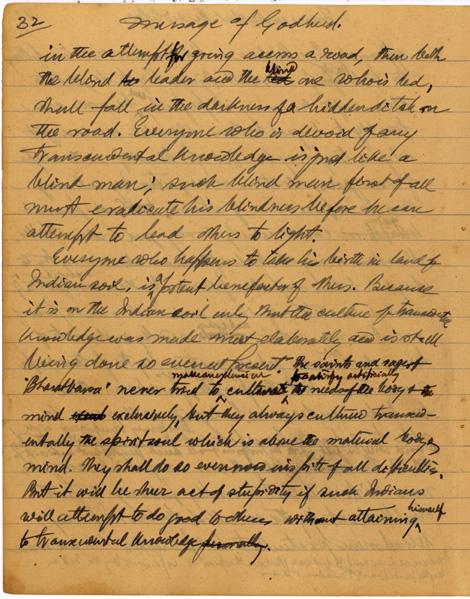 32 Message of Godhead.
in the attempt for going across a road, then both
the blind leader and the blind one who is led,
shall fall in the darkness of a hidden ditch on
the road. Everyone who is devoid of any
transcendental knowledge is just like a
blind man; such blind man first of all
must eradicate his blindness before he can
attempt to lead others to light.
Everyone who happens to take his birth in land of
Indian soil, is a potent benefactor of others. Because
it is on the Indian soil only that the culture of transcendental
knowledge was made most elaborately and is still
being done so even at present. The saints and sages of
'Bharatbarsa' never tried to the need of the body & the
mind exclusively, but they always cultured transcend-
entally the spirit soul which is above the material body &
mind. They shall do so even now inspite of all difficulties.
But it will be sheer act of stupidity if such Indians
will attempt to do good to others without attaining himself
to transcendental knowledge